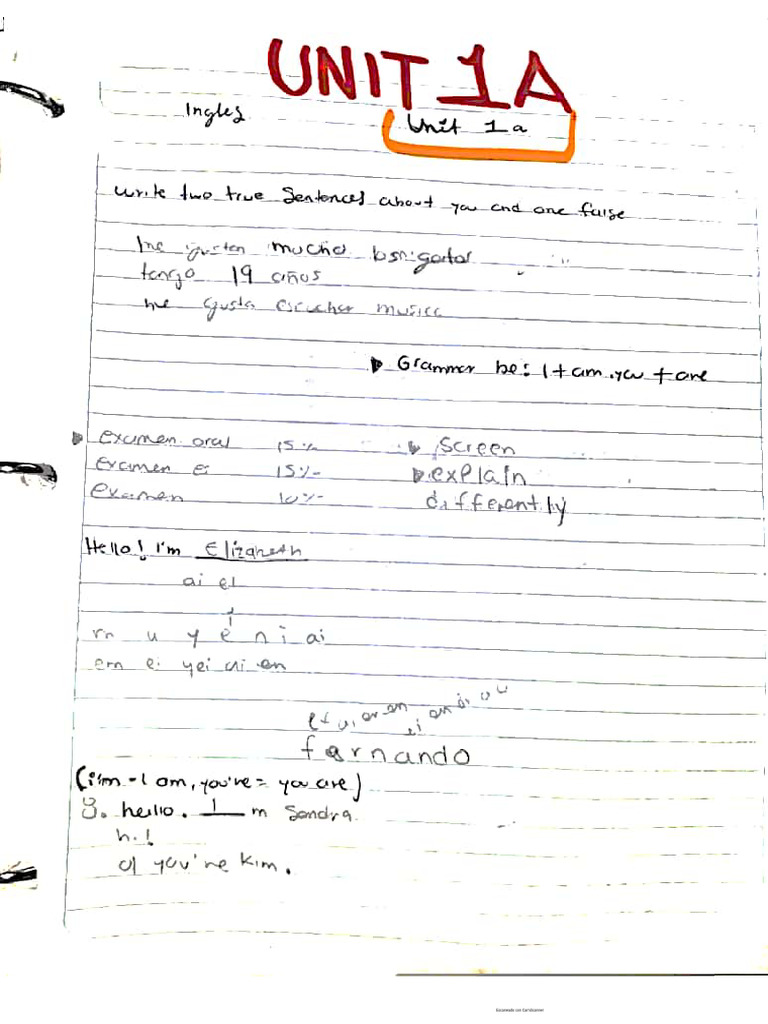 UNIT 1A
Ingles
Unit 1a
write two true Sentences about you and one false
me gustan mucho los gatos
tengo 19 años
me gusta escuchar musica
Grammar be: I + am. you + are
examen oral 15% screen
examen e 15% explain
examen 10% differently
Hello! I'm Elizabeth
ai el
m u y e n i ai
em ei yei ai en
fernando
(i'm = I am, you're = you are)
3. hello. I m Sandra
h!
a) you're Kim.
Escaneado con CamScanner